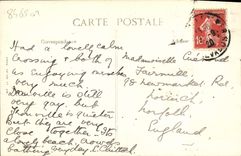 CARTE POSTALE
Correspondance
Had a lovely calm
Crossing & both of
us enjoying ourselves
very much
Deauville is still
very gay but
Trouville is quieter
But they are very
close together. It's
a lovely beach, crowds
bathing every day.
Mademoiselle
Fairmile
98 Newmarket Rd.
Norwich
Norfolk
England